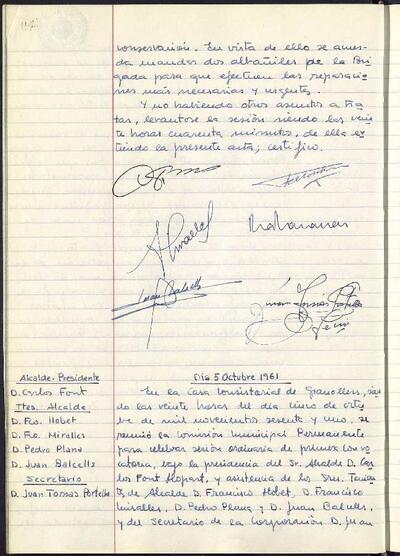 conservación. En vista de ello se acuer-
da mandar dos albañiles de la Bri-
gada para que efectúen las reparacio-
nes más necesarias y urgentes.
Y no habiendo otros asuntos a tra-
tar, levantose la sesión siendo las vein-
te horas cuarenta minutos, de ella ex-
tiendo la presente acta; certifico.
Juan Balcells
Alcalde-Presidente
D. Carlos Font
Ttes. Alcalde
D. Fco. Llobet
D. Fco. Miralles
D. Pedro Plana
D. Juan Balcells
Secretario
D. Juan Torras Portella
Día 5 Octubre 1961
En la Casa Consistorial de Granollers, sien-
do las veinte horas del día cinco de octu-
bre de mil novecientos sesenta y uno, se
reunió la Comisión Municipal Permanente
para celebrar sesión ordinaria de primera convo-
catoria, bajo la presidencia del Sr. Alcalde D. Car-
los Font Llopart, y asistencia de los Sres. Tenien-
tes de Alcalde D. Francisco Llobet, D. Francisco
Miralles, D. Pedro Plana y D. Juan Balcells,
y del Secretario de la Corporación D. Juan